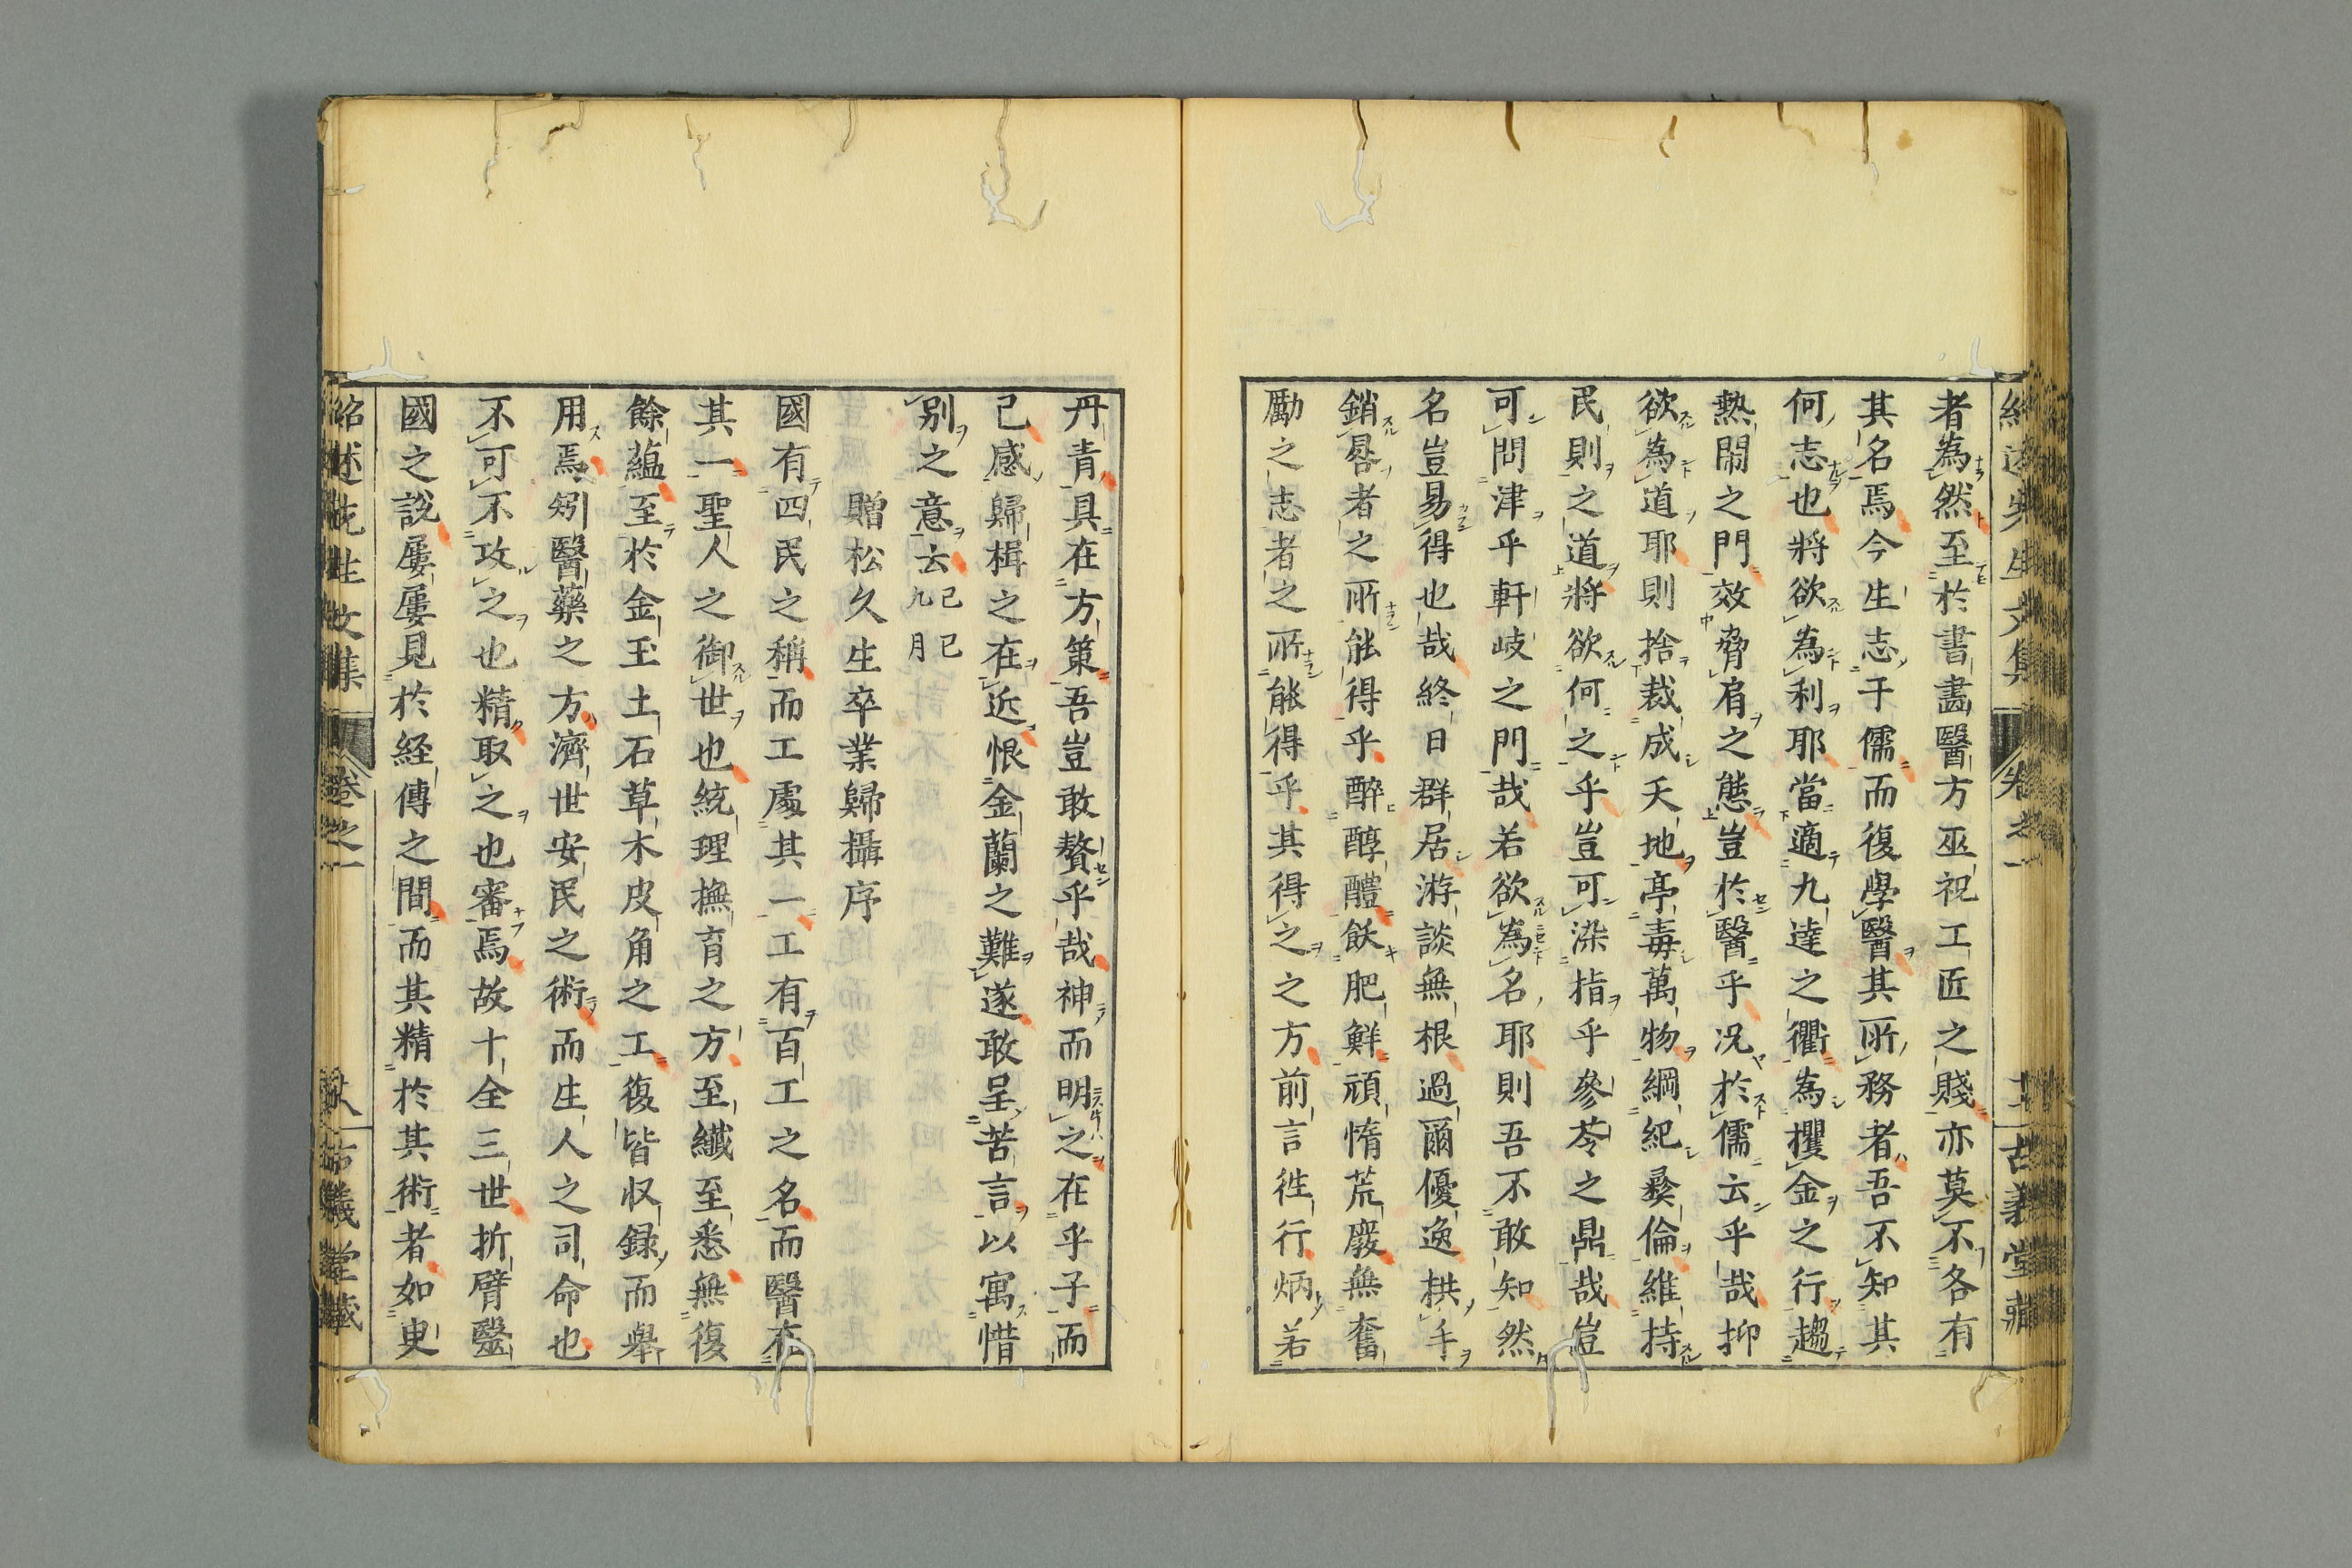 者為然至於書畫醫方巫祝工匠之賤亦莫不各有
其名焉今生志于儒而復學醫其所務者吾不知其
何志也將欲為利耶當適九達之衢為攫金之行趨
熱鬧之門效脅肩之態豈於醫乎況於儒云乎哉抑
欲為道耶則捨裁成天地亭毒萬物綱紀彜倫維持
民則之道將欲何之乎豈可染指乎參苓之鼎哉豈
可問津乎軒岐之門哉若欲為名耶則吾不敢知然
名豈易得也哉終日群居游談無根過爾優逸拱手
銷晷者之所能得乎醉醇醴飫肥鮮頑惰荒廢無奮
勵之志者之所能得乎其得之之方前言徃行炳若
丹青具在方策吾豈敢贅乎哉神而明之在乎子而
已感歸楫之在近恨金蘭之難遂敢呈苦言以寓惜
別之意云己巳九月
贈松久生卒業歸攝序
國有四民之稱而工處其一工有百工之名而醫在
其一聖人之御世也統理撫育之方至纎至悉無復
餘蘊至於金玉土石草木皮角之工復皆収録而舉
用焉矧醫藥之方濟世安民之術而生人之司命也
不可不攻之也精取之也審焉故十全三世折臂毉
國之說屢屢見於経傳之間而其精於其術者如史
紹述先生文集 卷之一 古義堂藏